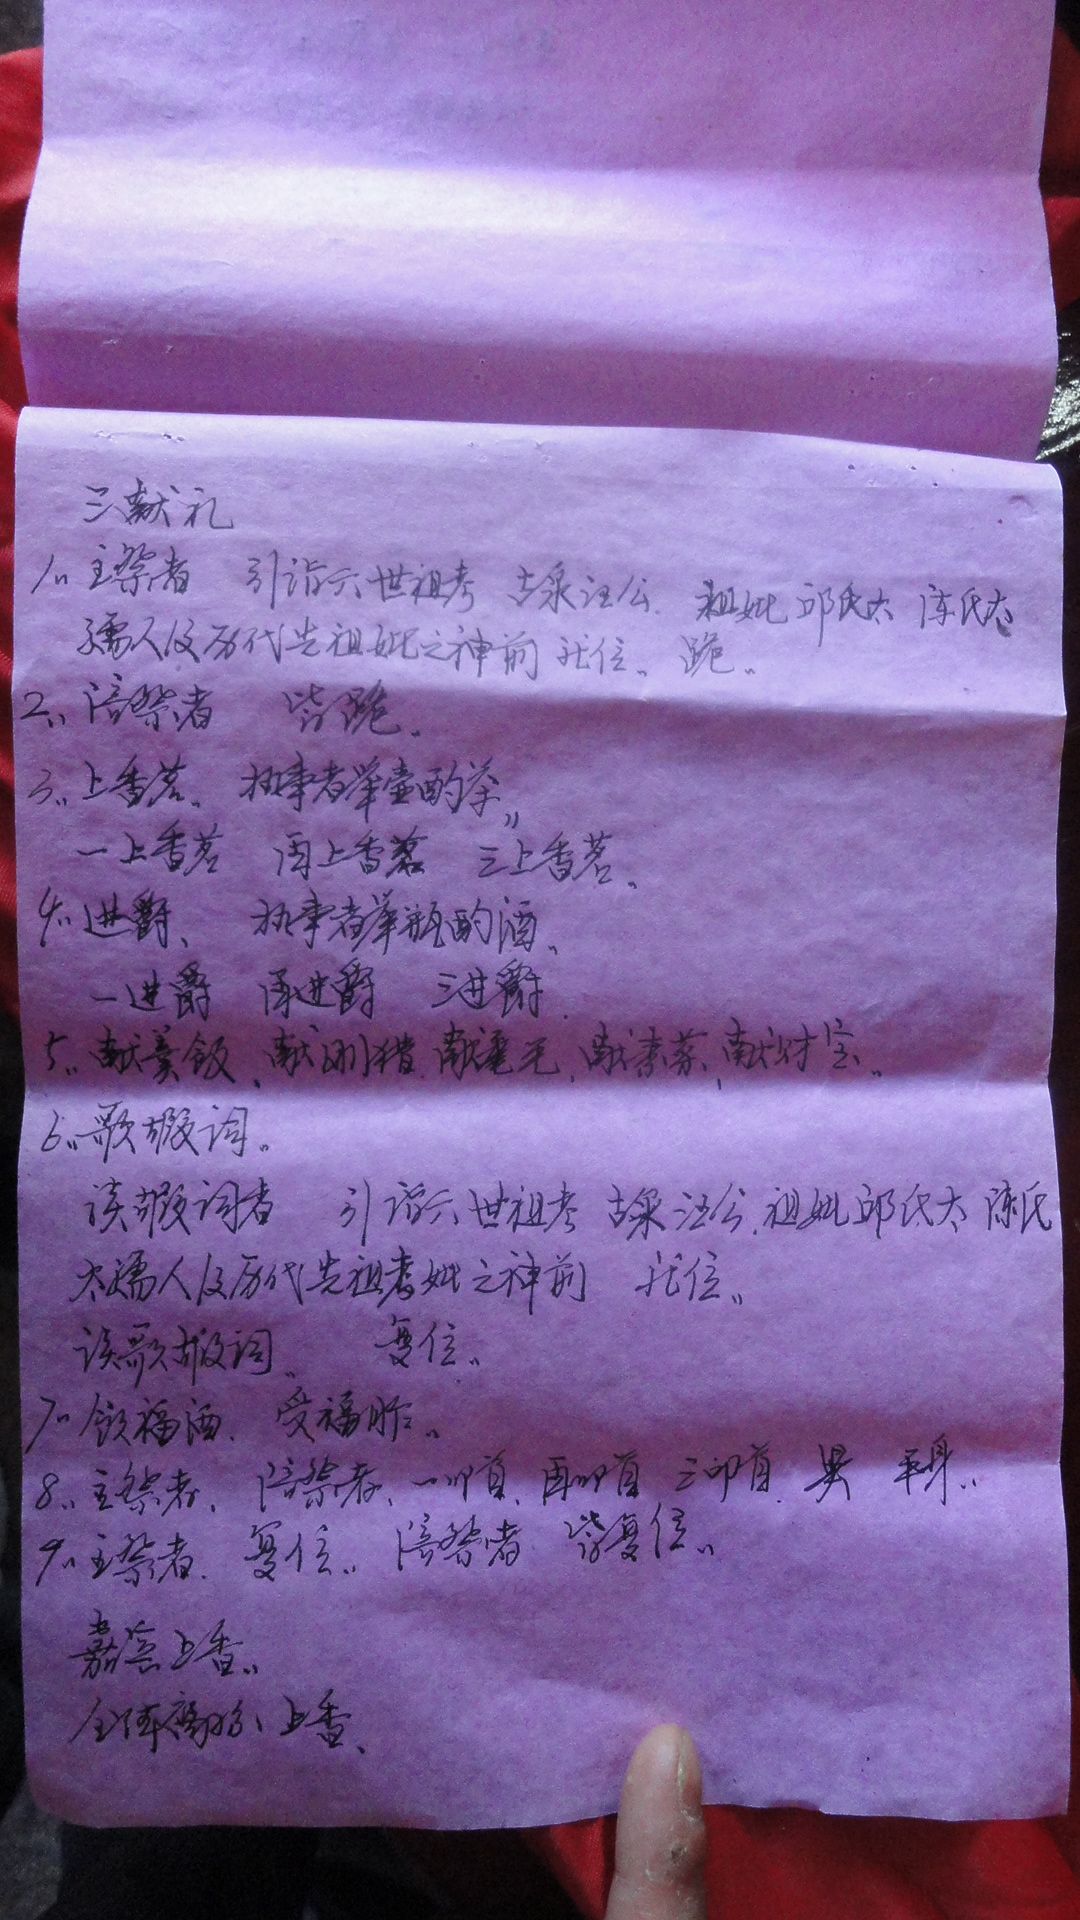 三献礼
1、主祭者 引诣六世祖考 古泉汪公、祖妣邱氏太 陈氏太
孺人及历代先祖妣之神前就位。跪。
2、陪祭者 皆跪。
3、上香茗、执事者举壶酌茶、
一上香茗 再上香茗 三上香茗、
4、进爵、执事者举瓶酌酒、
一进爵 再进爵 三进爵
5、献羹饭、献刚猎、献毫毛、献素菜、献财宝。
6、歌嘏词。
读嘏词者 引诣六世祖考 古泉汪公、祖妣邱氏太 陈氏
太孺人及历代先祖考妣之神前 就位。
读歌嘏词、复位。
7、饮福酒、受福胙。
8、主祭者、陪祭者、一叩首、再叩首 三叩首、兴 平身。
9、主祭者、复位。陪祭者 皆复位。
嘉宾上香。
全体裔孙、上香、